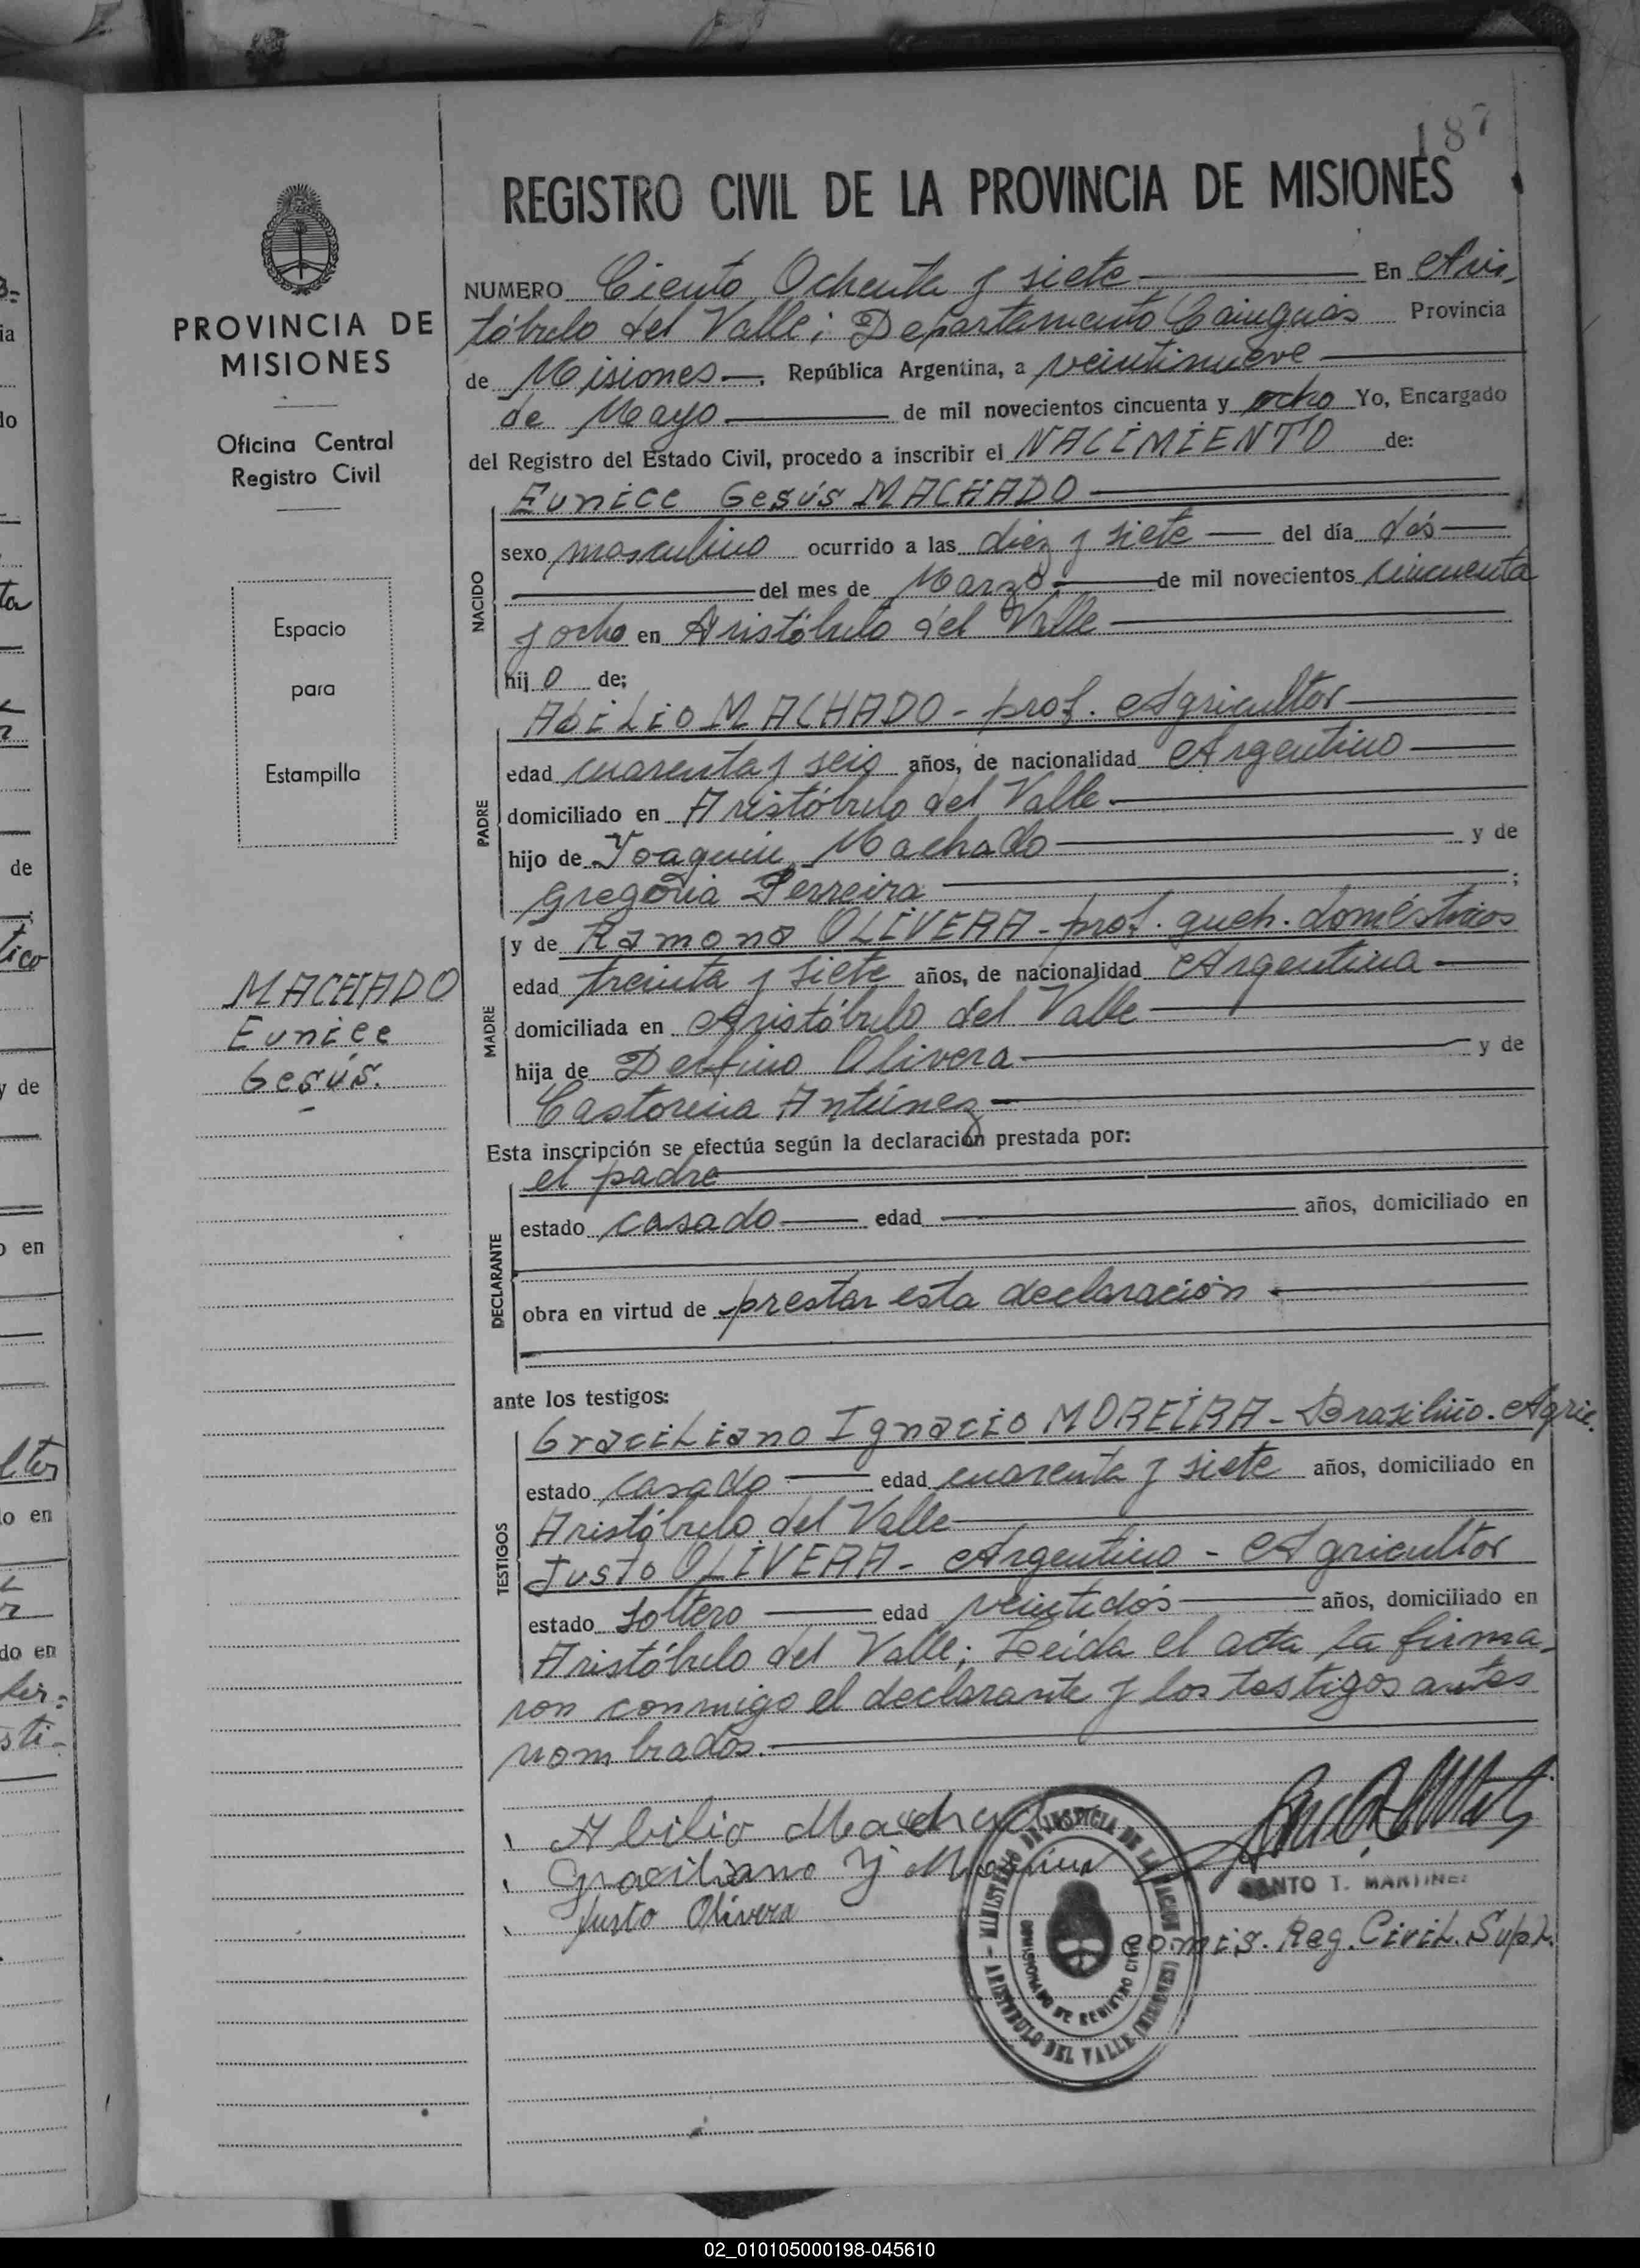 187
REGISTRO CIVIL DE LA PROVINCIA DE MISIONES
PROVINCIA DE
MISIONES
Oficina Central
Registro Civil
Espacio
para
Estampilla
MACHADO
Eunice
Gesús.
NUMERO Ciento Ochenta y siete En Aris-
tóbulo del Valle; Departamento Cainguás Provincia
de Misiones. República Argentina, a veintinueve
de Mayo de mil novecientos cincuenta y ocho Yo, Encargado
del Registro del Estado Civil, procedo a inscribir el NACIMIENTO de:
NACIDO
Eunice Gesús MACHADO
sexo masculino ocurrido a las diez y siete del día dós
del mes de Marzo de mil novecientos cincuenta
y ocho en Aristóbulo del Valle
hij o de;
PADRE
Abilio MACHADO - prof. Agricultor
edad cuarenta y seis años, de nacionalidad Argentino
domiciliado en Aristóbulo del Valle
hijo de Joaquin Machado y de
Gregoria Ferreira ;
MADRE
y de Ramona OLIVERA - prof. queh. domésticos
edad treinta y siete años, de nacionalidad Argentina
domiciliada en Aristóbulo del Valle
hija de Delfino Olivera y de
Castorina Antúnez
Esta inscripción se efectúa según la declaración prestada por:
DECLARANTE
el padre
estado casado edad años, domiciliado en
obra en virtud de prestar esta declaración
ante los testigos:
TESTIGOS
Graciliano Ignacio MOREIRA - Brasilino. Agric.
estado casado edad cuarenta y siete años, domiciliado en
Aristóbulo del Valle
Justo OLIVERA - Argentino - Agricultor
estado soltero edad veintidós años, domiciliado en
Aristóbulo del Valle; Leida el acta la firma-
ron conmigo el declarante y los testigos antes
nombrados.
Abilio Machado
Graciliano Y Moreira
Justo Olivera
MINISTERIO DE JUSTICIA DE LA NACION
COMISIONADO DE REGISTRO CIVIL
ARISTOBULO DEL VALLE (MISIONES)
SANTO T. MARTINEZ
Comis. Reg. Civil. Supl.
02_010105000198-045610